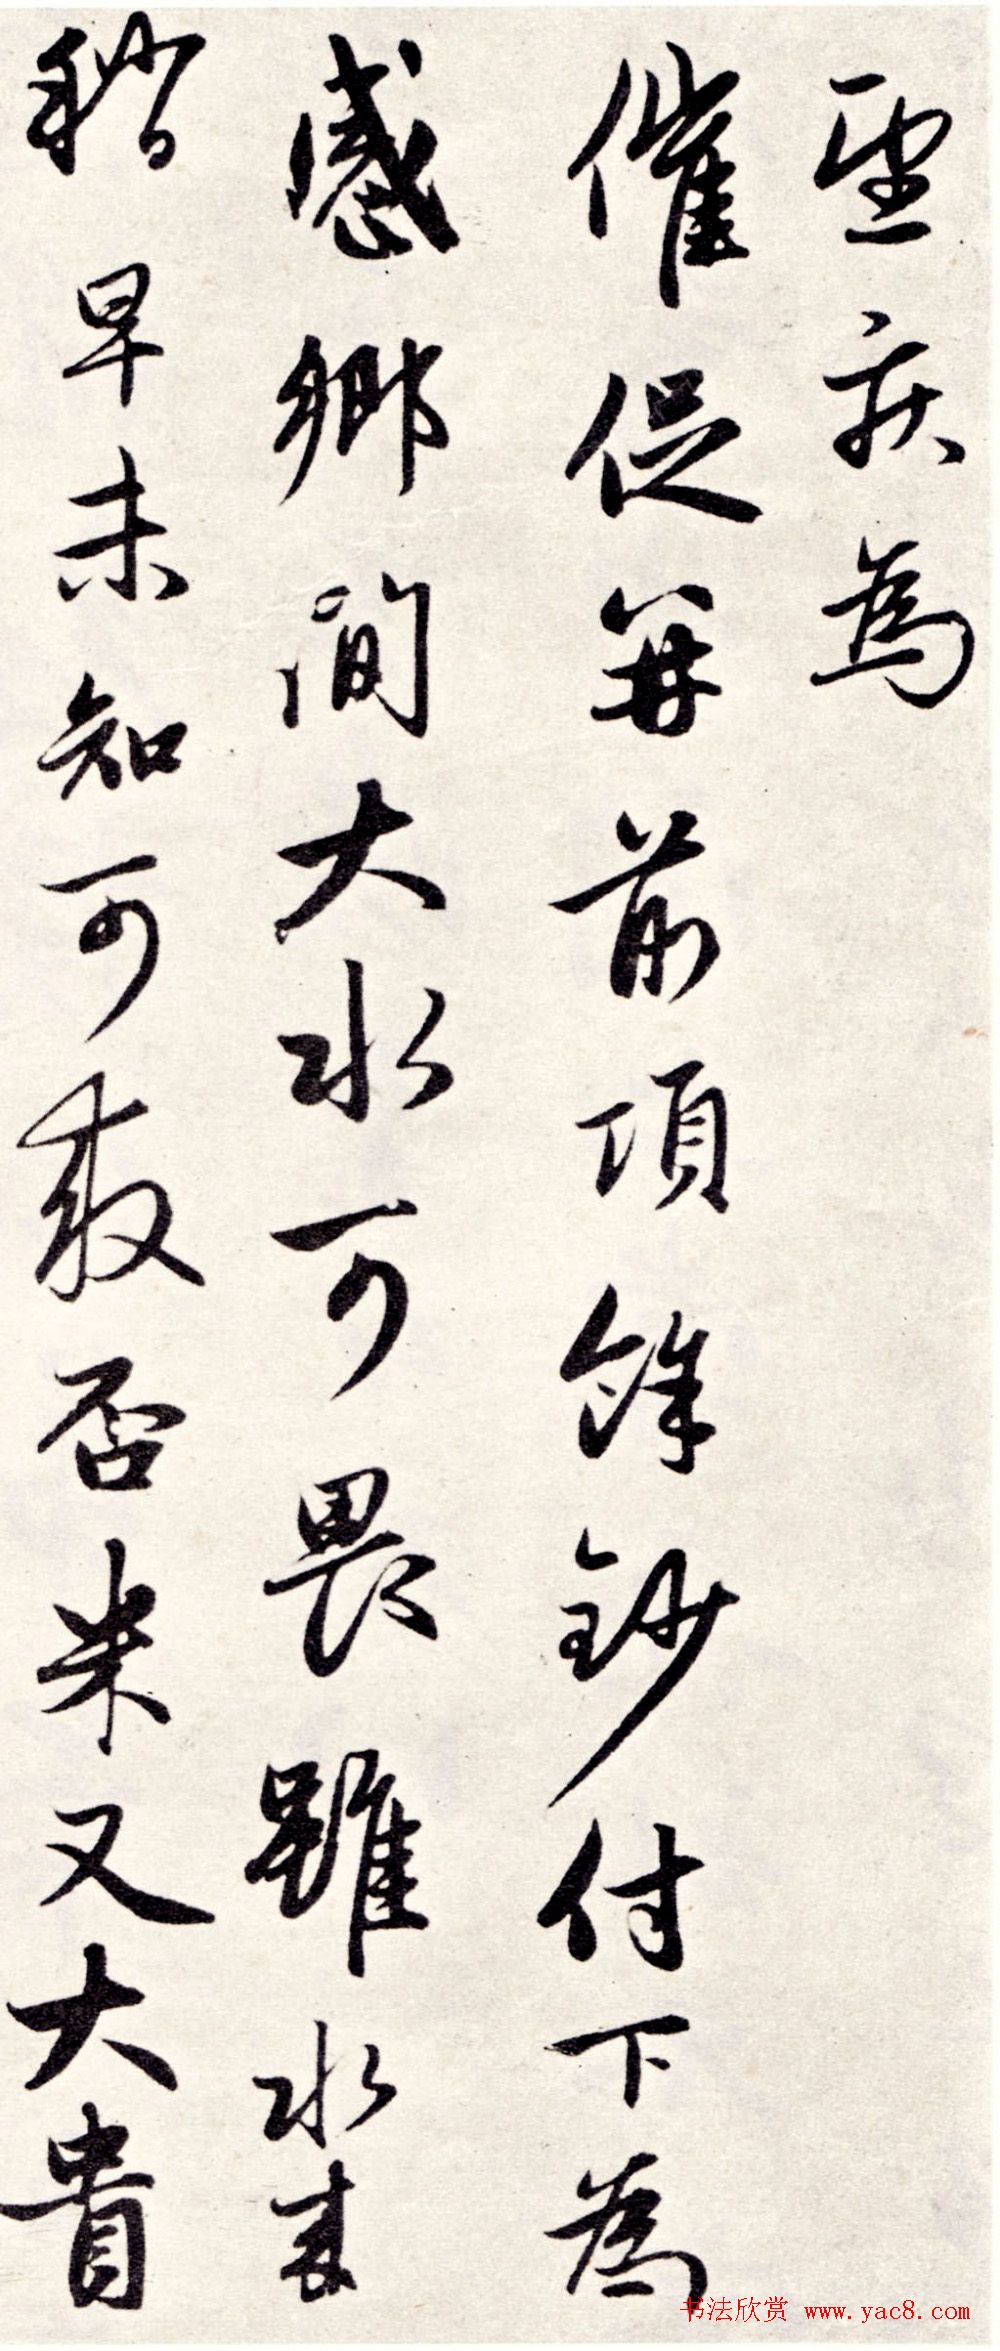 聖疾為
催促并前項餘鈔付下為
感鄉間大水可畏雖水來
稍早未知可救否米又大貴
书法欣赏 www.yac8.com